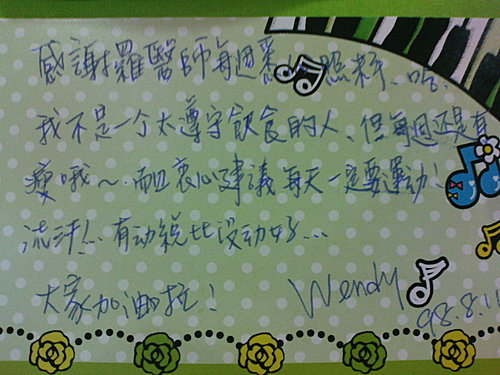 感謝羅醫師每週悉心照料、哈、
我不是一个太遵守飲食的人、但每週還是有
瘦哦～而且衷心建議每天一定要運动!
流汗!、有动總比沒动好...
大家加油拉!
Wendy
98.8.11